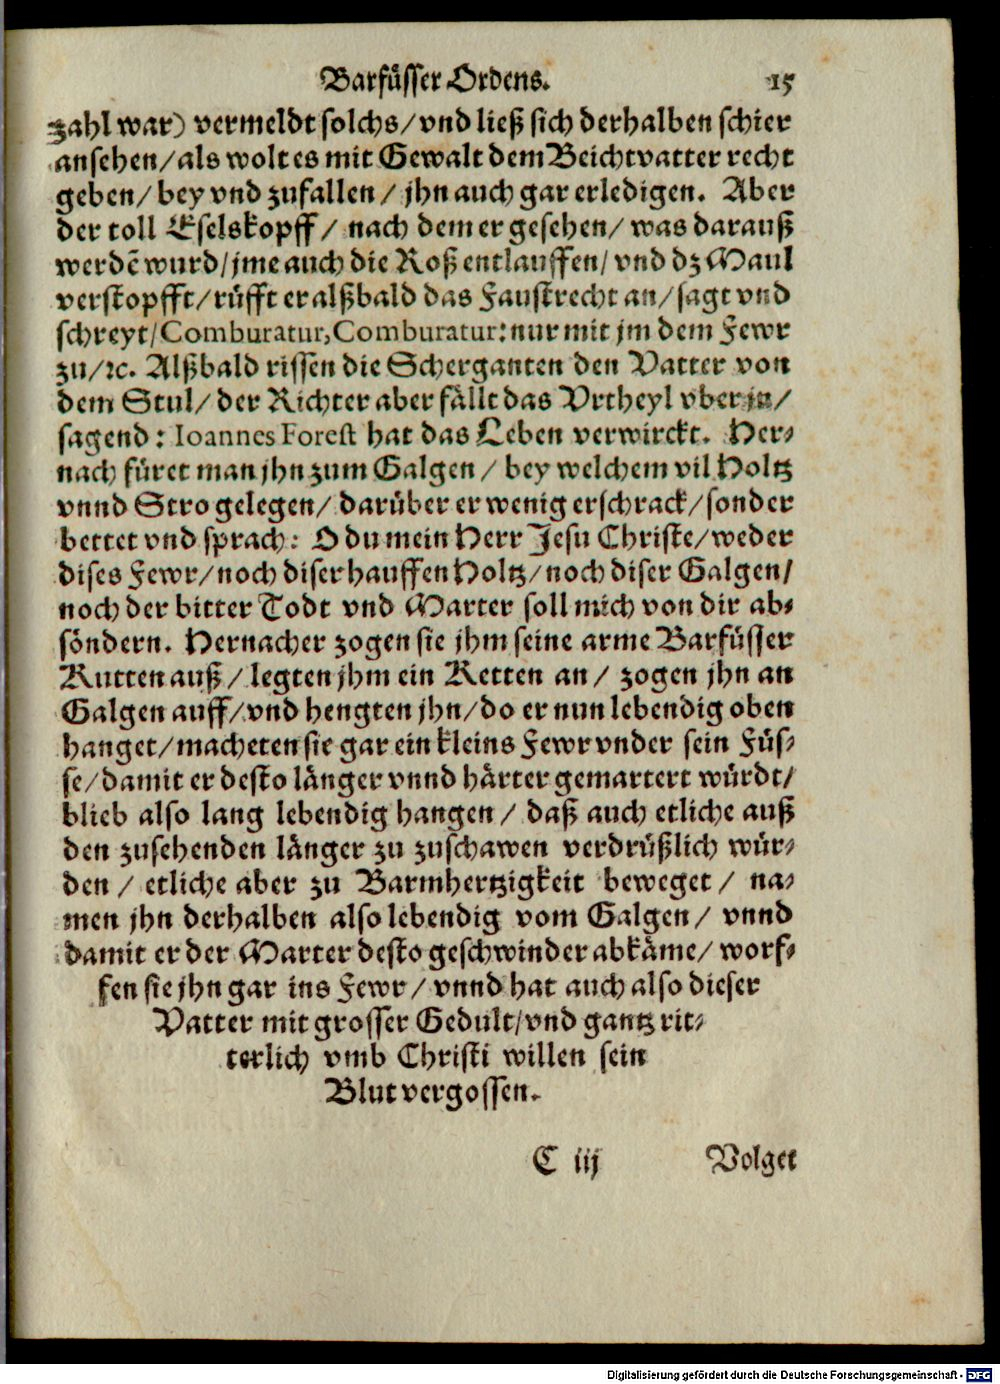 Barfüsser Ordens. 15
zahl war) vermeldt solchs/ vnd ließ sich derhalben schier
ansehen/ als wolt es mit Gewalt dem Beichtvatter recht
geben/ bey vnd zufallen/ jhn auch gar erledigen. Aber
der toll Eselskopff/ nach dem er gesehen/ was darauß
werdē wurd/ jme auch die Roß entlauffen/ vnd dz Maul
verstopfft/ rüfft er alßbald das Faustrecht an/ sagt vnd
schreyt/ Comburatur, Comburatur: nur mit jm dem Fewr
zu/ ꝛc. Alßbald rissen die Scherganten den Vatter von
dem Stul/ der Richter aber fällt das Vrtheyl vber jn/
sagend: Ioannes Forest hat das Leben verwirckt. Her-
nach füret man jhn zum Galgen/ bey welchem vil Holtz
vnnd Stro gelegen/ darüber er wenig erschrack/ sonder
bettet vnd sprach: O du mein Herr Jesu Christe/ weder
dises Fewr/ noch diser hauffen Holtz/ noch diser Galgen/
noch der bitter Todt vnd Marter soll mich von dir ab-
söndern. Hernacher zogen sie jhm seine arme Barfüsser
Kutten auß/ legten jhm ein Ketten an/ zogen jhn an
Galgen auff/ vnd hengten jhn/ do er nun lebendig oben
hanget/ macheten sie gar ein kleins Fewr vnder sein Füs-
se/ damit er desto länger vnnd härter gemartert würdt/
blieb also lang lebendig hangen/ daß auch etliche auß
den zusehenden länger zu zuschawen verdrüßlich wür-
den/ etliche aber zu Barmhertzigkeit beweget/ na-
men jhn derhalben also lebendig vom Galgen/ vnnd
damit er der Marter desto geschwinder abkäme/ worf-
fen sie jhn gar ins Fewr/ vnnd hat auch also dieser
Vatter mit grosser Gedult/ vnd gantz rit-
terlich vmb Christi willen sein
Blut vergossen.
C iij Volget
Digitalisierung gefördert durch die Deutsche Forschungsgemeinschaft - DFG